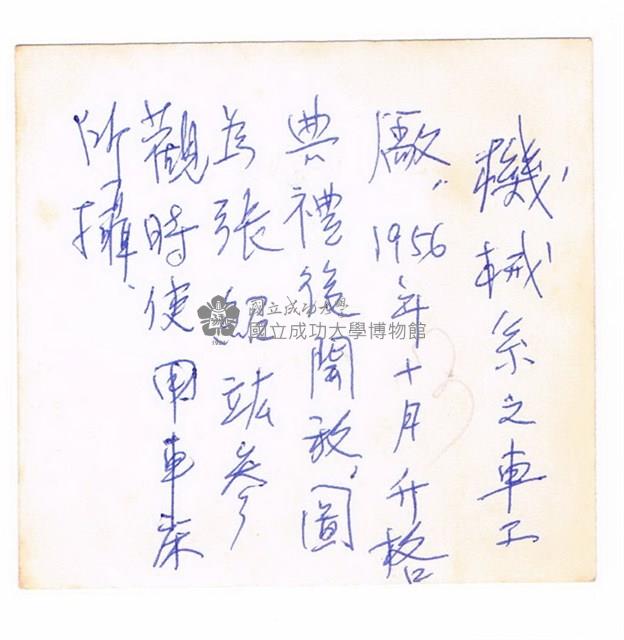 機械系之車工
廠,1956年十月升格
典禮後開放,圖
為張紹竑參
觀時使用車床
所攝、
國立成功大學
國立成功大學博物館